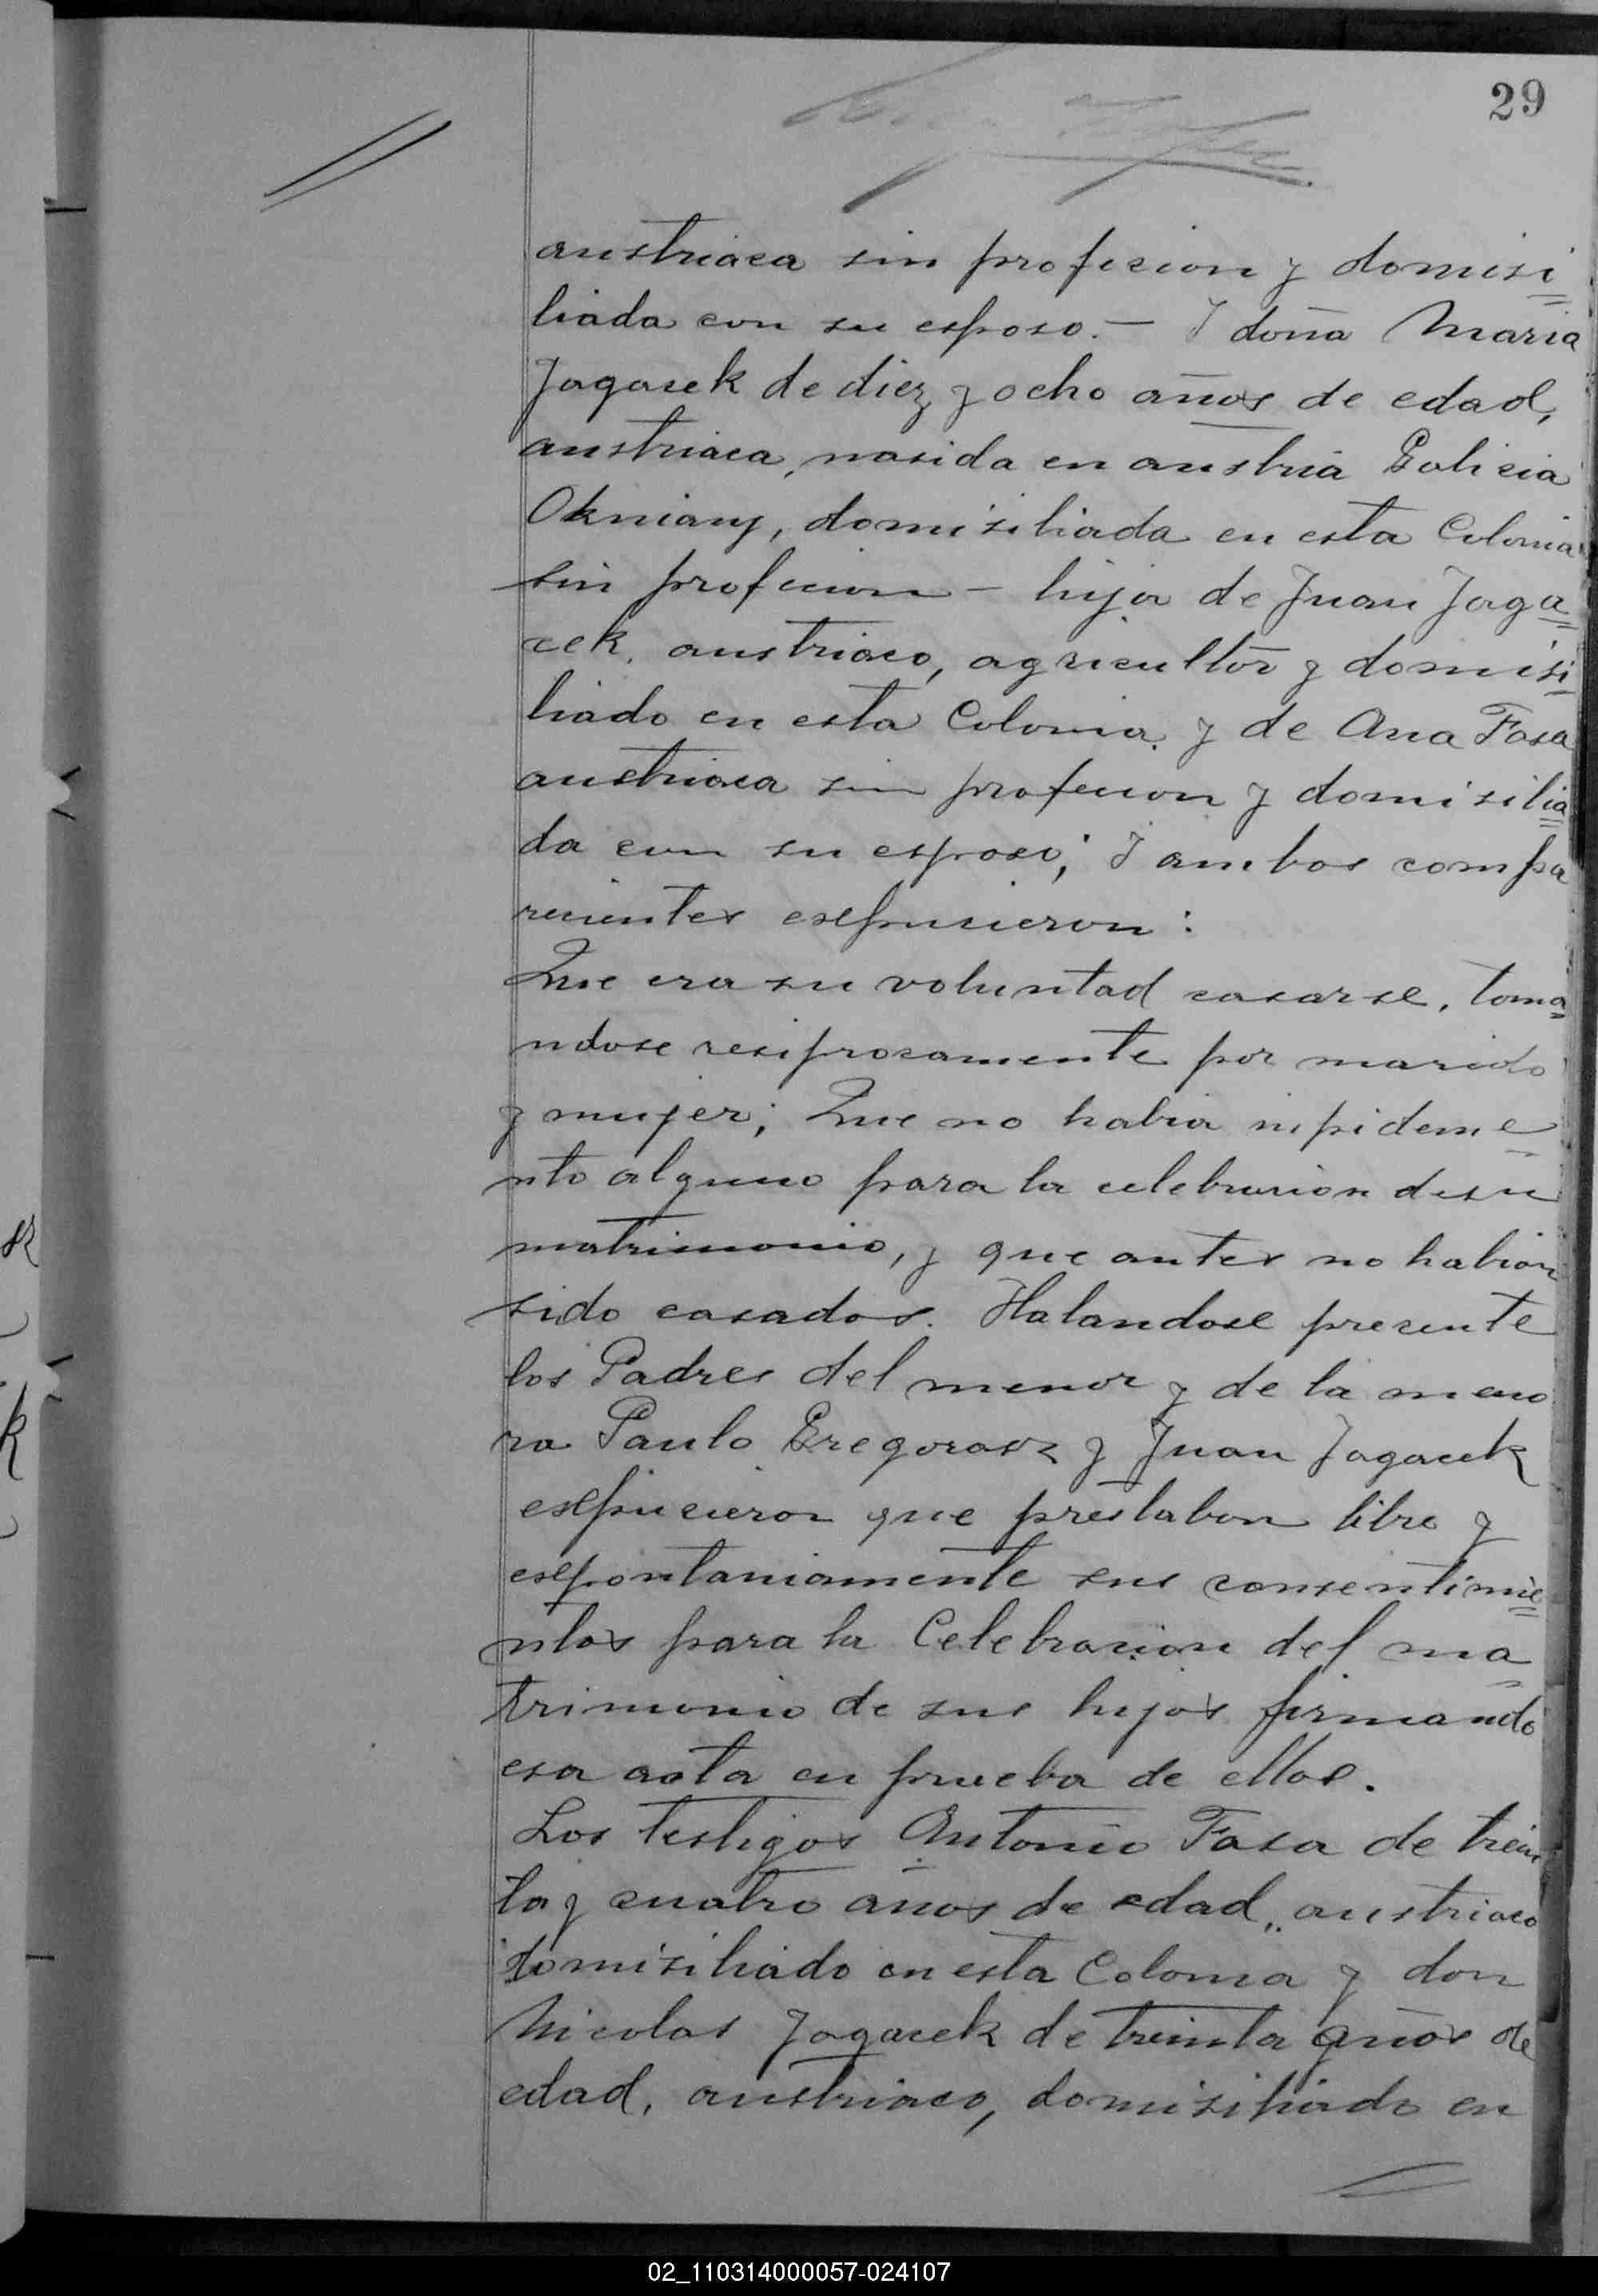 29
austriaca sin profecion y domisi
liada con su esposo. — I doña Maria
Jagasek de diez y ocho años de edad,
austriaca, nasida en austria Galicia
Okniany, domisiliada en esta Colonia
sin profecion — hija de Juan Jaga
cek, austriaco, agricultor y domisi
liado en esta Colonia y de Ana Fasa
austriaca sin profecion y domisilia
da con su esposo; I ambos compa
recientes esepusieron:
Que era su voluntad casarse, toma
ndose resiprosamente por marido
y mujer; Que no habia inpideme
nto alguno para la celebracion desu
matrimonio, y que antes no habian
sido casados. Halandose presente
los Padres del menor y de la meno
ra Paulo Gregorasz y Juan Jagacek
esepucieron que prestabon libre y
esepontaniamente sus consentimie
ntos para la Celebracion del ma
trimonio de sus hijos firmando
esa acta en prueba de ellos.
Los testigos Antonio Fasa de trein
ta y cuatro años de edad, austriaco
domisiliado en esta Colonia y don
Nicolas Jagasek de treinta años de
edad, austriaco, domisiliado en
02_110314000057-024107